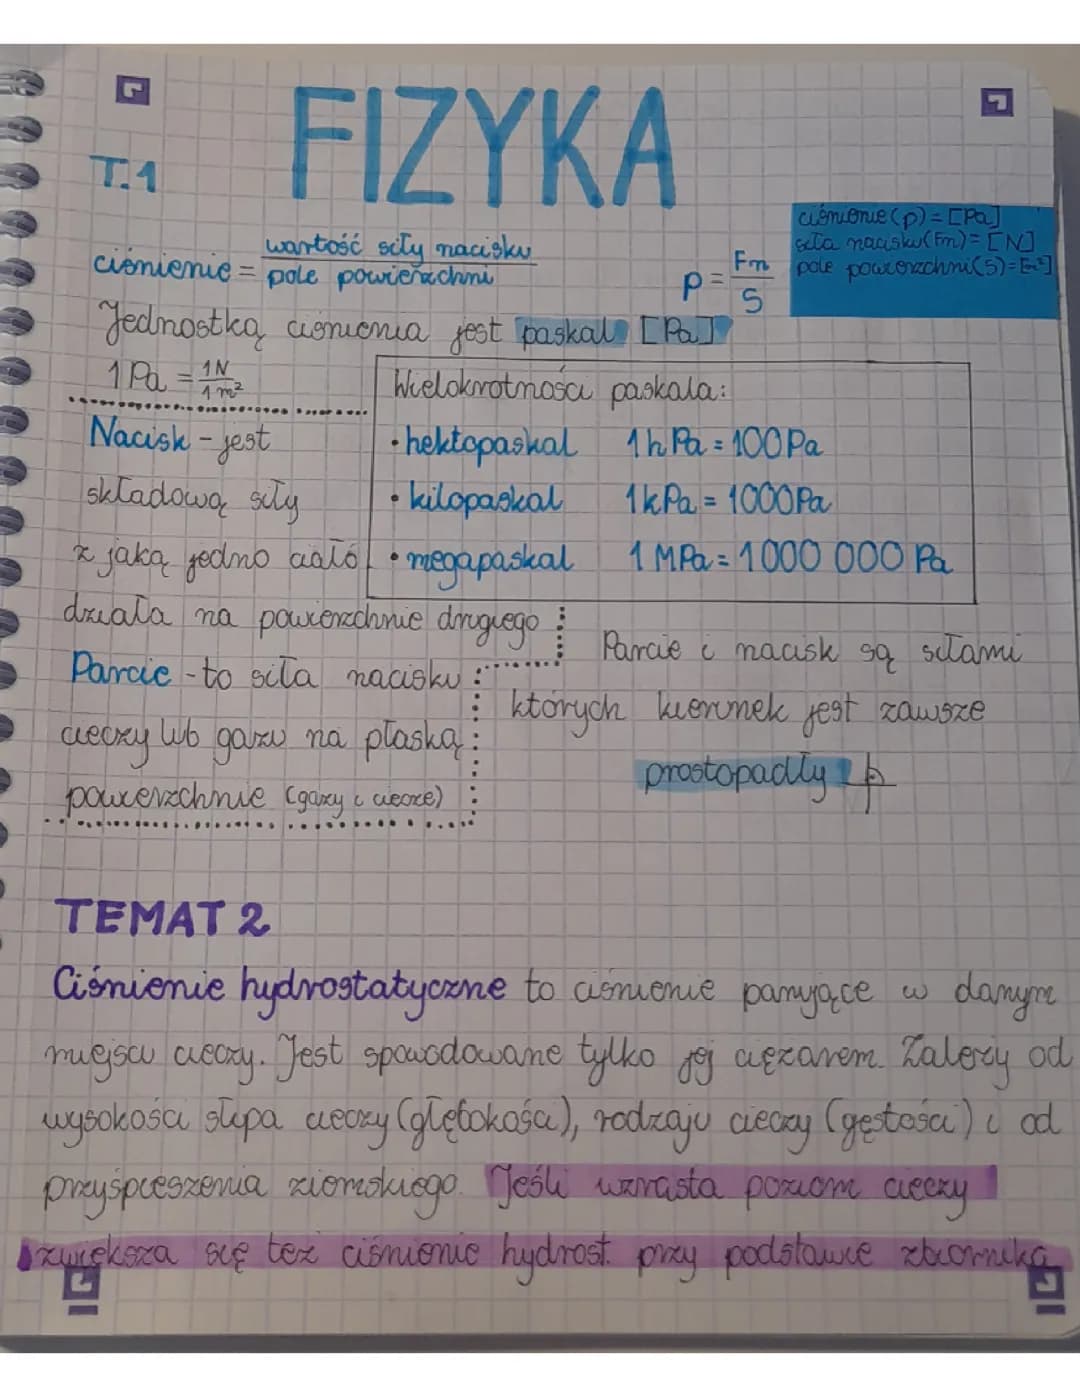 FIZYKA
T.1
ciśnienie (p) = [Pa]
siła nacisku (Fn) = [N]
pole powierzchni (S) = [m²]
ciśnienie = wartość siły nacisku / pole powierzchni
p = Fn / S
Jednostką ciśnienia jest paskal [Pa]
1 Pa = 1N / 1m²
Wielokrotności paskala:
• hektopaskal 1 hPa = 100 Pa
• kilopaskal 1 kPa = 1000 Pa
• megapaskal 1 MPa = 1000 000 Pa
Nacisk - jest
składową siły
z jaką jedno ciało
działa na powierzchnie drugiego
Parcie - to siła nacisku
cieczy lub gazu na płaską
powierzchnie (gazy i ciecze)
Parcie i nacisk są siłami
których kierunek jest zawsze
prostopadły
TEMAT 2
Ciśnienie hydrostatyczne to ciśnienie panujące w danym
miejscu cieczy. Jest spowodowane tylko jej ciężarem. Zależy od
wysokości słupa cieczy (głębokości), rodzaju cieczy (gęstości) i od
przyśpieszenia ziemskiego. Jeśli wzrasta poziom cieczy
zwiększa się też ciśnienie hydrost. przy podstawie zbiornika